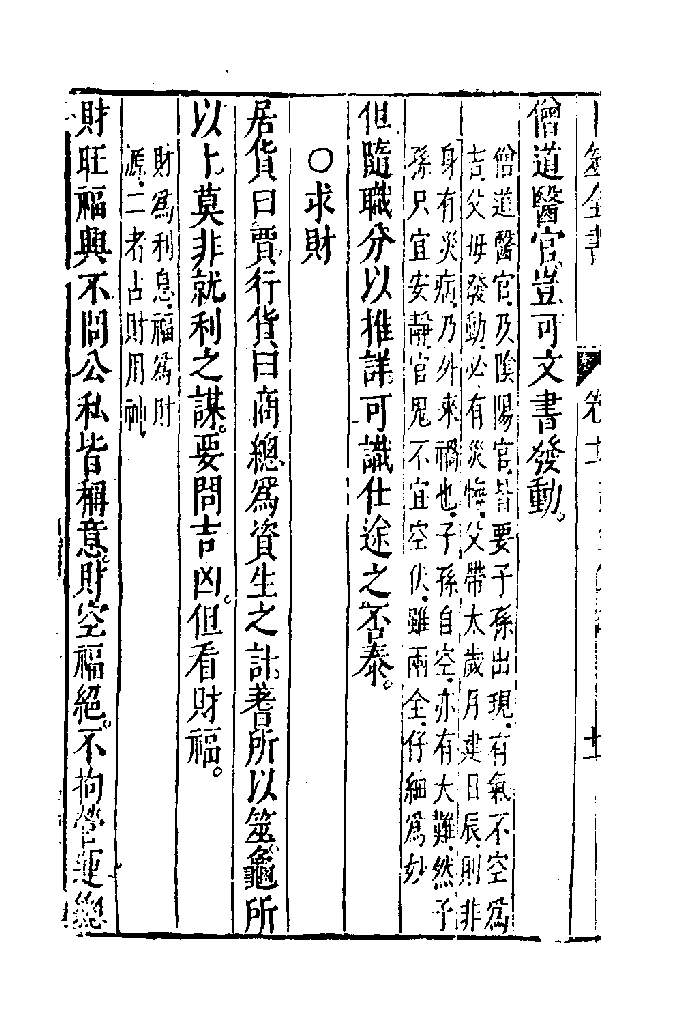 卜筮全書 卷十
僧道醫官豈可文書發動。
僧道醫官及陰陽官皆要子孫出現有氣不空爲
吉父母發動必有災悔父帶太歲月建日辰則非
身有災病乃外來禍也子孫自空亦有大難然子
孫只宜安靜官鬼不宜空伏雖兩全仔細爲妙
但隨職分以推詳可識仕途之否泰。
○求財
居貨曰賈行貨曰商總爲資生之計蓍所以筮龜所
以卜莫非就利之謀要問吉凶。但看財福。
財爲利息福爲財
源二者占財用神
財旺福興不問公私皆稱意財空福絕。不拘營運總